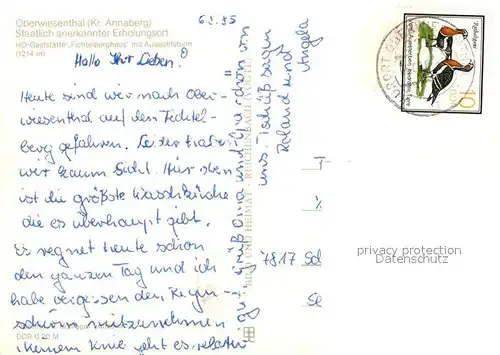 Oberwiesenthal (Kr. Annaberg)
Staatlich anerkannter Erholungsort
HO-Gaststätte "Fichtelberghaus" mit Aussichtsturm
(1214 m)
Hallo Ihr Lieben!
Heute sind wir nach Ober-
wiesenthal auf den Fichtel-
berg gefahren. Leider haben
wir kaum Sicht. Hier oben
ist die größte Waschküche
die es überhaupt gibt.
Es regnet heute schon
den ganzen Tag und ich
habe vergessen den Regen-
schirm mitzunehmen
meinem Knie geht es relativ
gut. Grüßt Oma und Opa schön von
uns. Tschüß sagen
Roland und Angela
BILD UND HEIMAT REICHENBACH
DDR 0,20 M
10
7817
privacy protection
Datenschutz